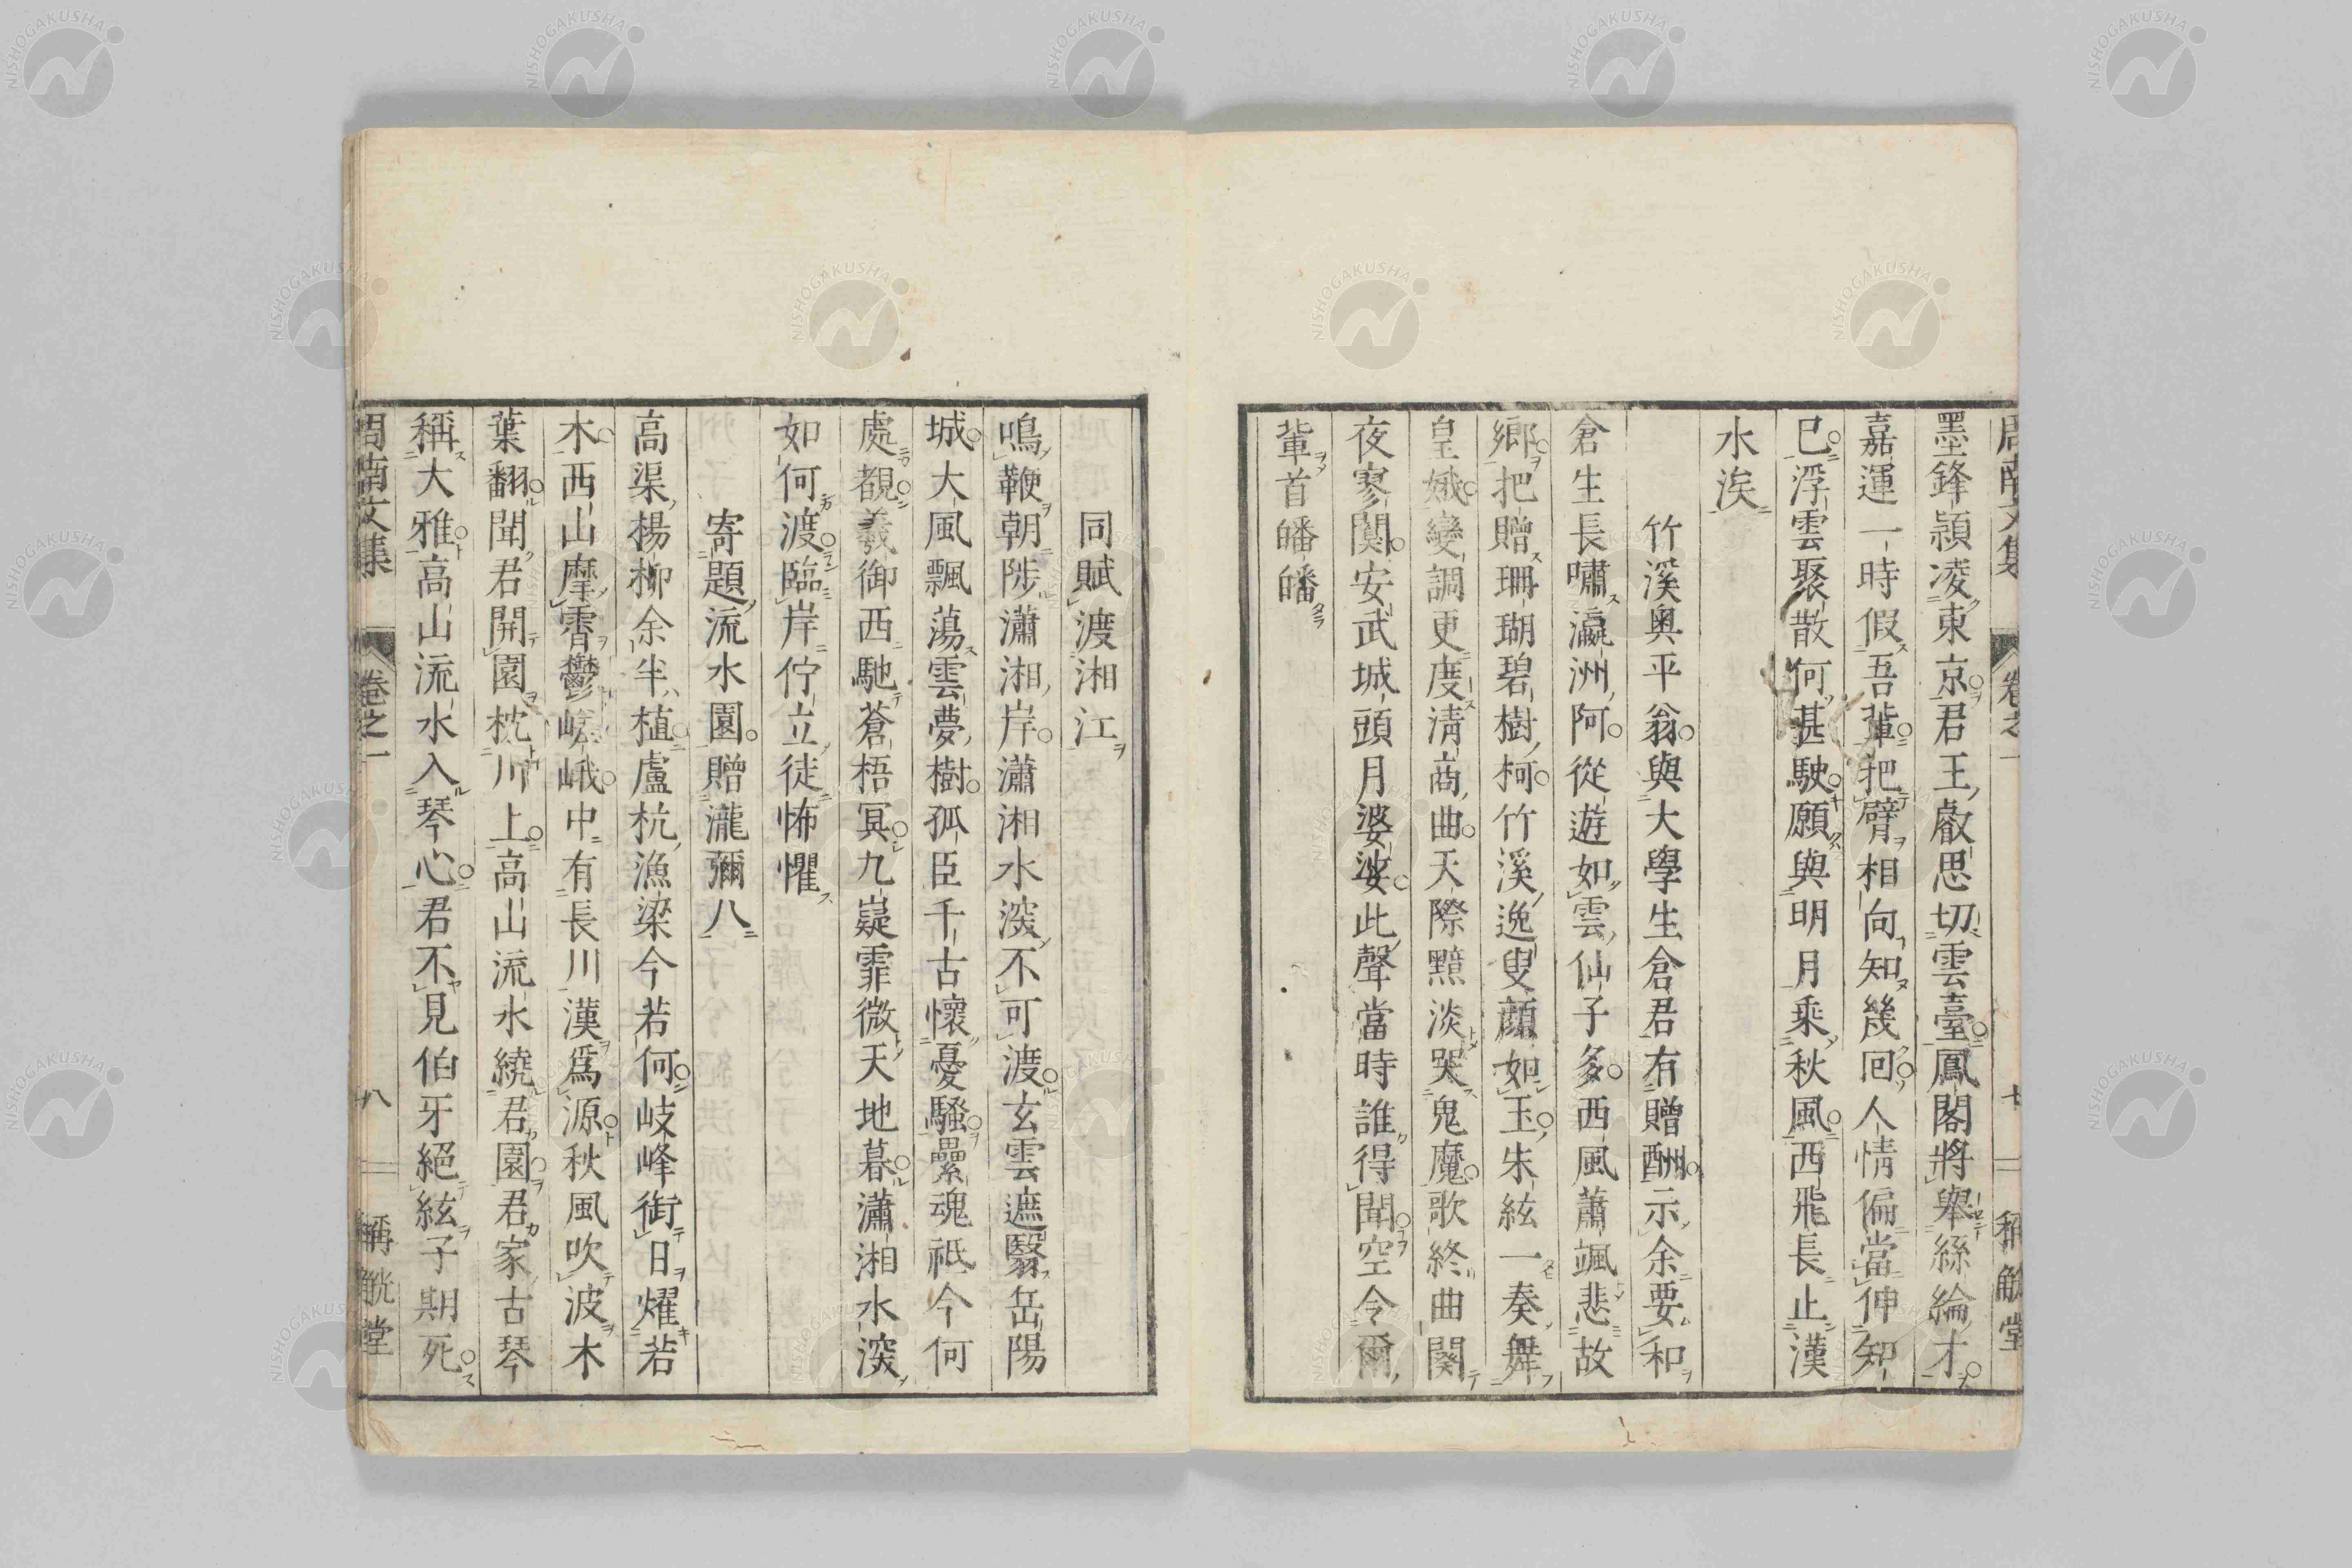 周南文集 卷之一 七 稱觥堂
墨鋒穎凌東京君王叡思切雲臺鳳閣將舉絲綸才
嘉運一時假吾輩把臂相向知幾回人情偏當伸知
已浮雲聚散何甚駛願與明月乘秋風西飛長止漢
水涘
竹溪奥平翁與大學生倉君有贈酬示余要和
倉生長嘯瀛洲阿從遊如雲仙子多西風蕭颯悲故
鄉把贈珊瑚碧樹柯竹溪逸叟顏如玉朱絃一奏舞
皇娥變調更度淸商曲天際黯淡哭鬼魔歌終曲闋
夜寥闃安武城頭月婆娑此聲當時誰得聞空令爾
輩首皤皤
同賦渡湘江
鳴鞭朝陟瀟湘岸瀟湘水深不可渡玄雲遮翳岳陽
城大風飄蕩雲夢樹孤臣千古懷憂騷纍魂祇今何
處覩羲御西馳蒼梧冥九嶷霏微天地暮瀟湘水深
如何渡臨岸佇立徒怖懼
寄題流水園贈瀧彌八
高渠楊柳余半植盧杭漁梁今若何岐峰銜日燿若
木西山摩霄鬱嵯峨中有長川漢爲源秋風吹波木
葉翻聞君開園枕川上高山流水繞君園君家古琴
稱大雅高山流水入琴心君不見伯牙絕絃子期死
周南文集 卷之一 八 稱觥堂
NISHOGAKUSHA